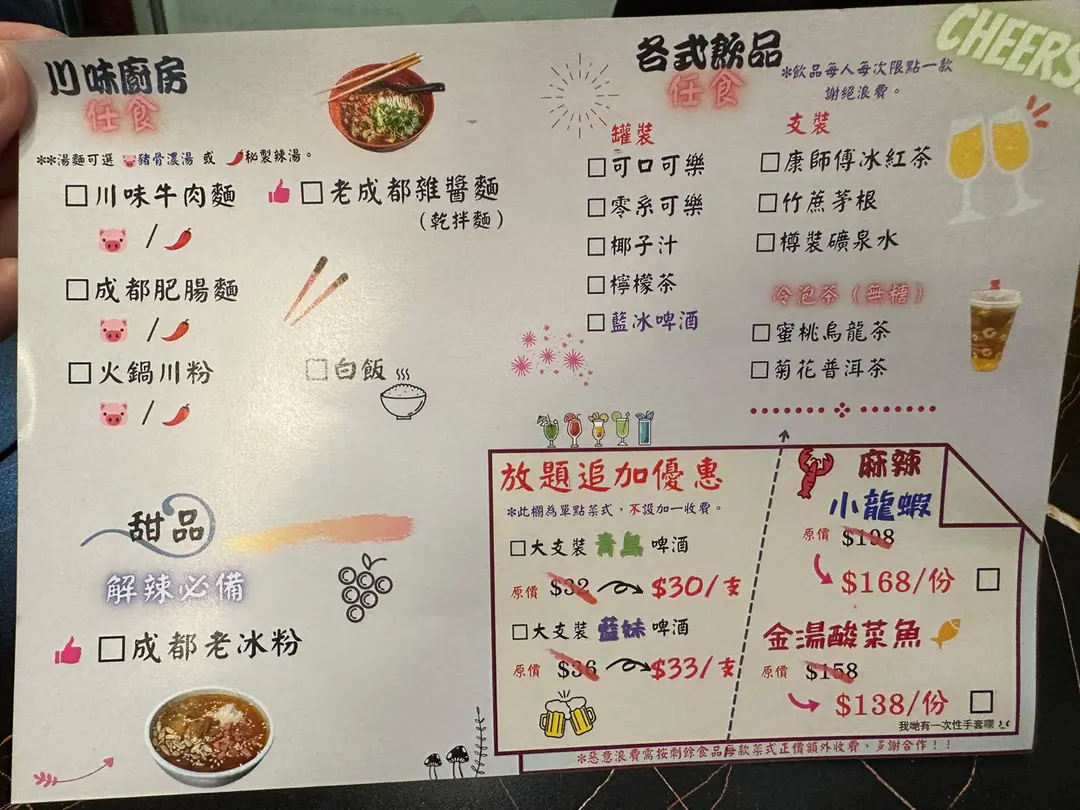 川味廚房
任食
**湯麵可選 豬骨濃湯 或 秘製辣湯。
川味牛肉麵
/
老成都雜醬麵
(乾拌麵)
成都肥腸麵
/
火鍋川粉
/
白飯
甜品
解辣必備
成都老冰粉
各式飲品
任食
*飲品每人每次限點一款
謝絕浪費。
CHEERS
罐裝
可口可樂
零系可樂
椰子汁
檸檬茶
藍冰啤酒
支裝
康師傅冰紅茶
竹蔗茅根
樽裝礦泉水
冷泡茶(無糖)
蜜桃烏龍茶
菊花普洱茶
放題追加優惠
*此欄為單點菜式,不設加一收費。
大支裝 青島 啤酒
原價 $32 $30/支
大支裝 藍妹 啤酒
原價 $36 $33/支
麻辣
小龍蝦
原價 $198
$168/份
金湯酸菜魚
原價 $158
$138/份
我哋有一次性手套㗎
*惡意浪費需按剩餘食品每款菜式正價額外收費,多謝合作!!